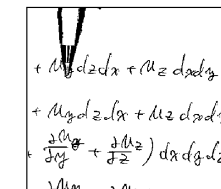 + u_y dzdx + u_z dxdy
+ u_y dzdx + u_z dxd
+ ∂u_y/∂y + ∂u_z/∂z ) dxdydz